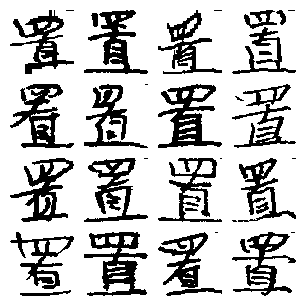 置置置置
置置置置
置置置置
置置置置